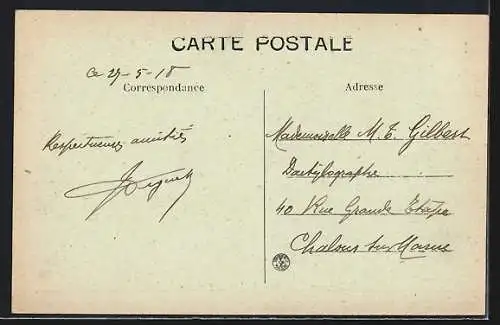 CARTE POSTALE
Ce 27-5-18
Correspondance
Adresse
Respectueuses amitiés
Mademoiselle M. E. Gilbert
Dactylographe
40 Rue Grande Etape
Chalons sur Marne